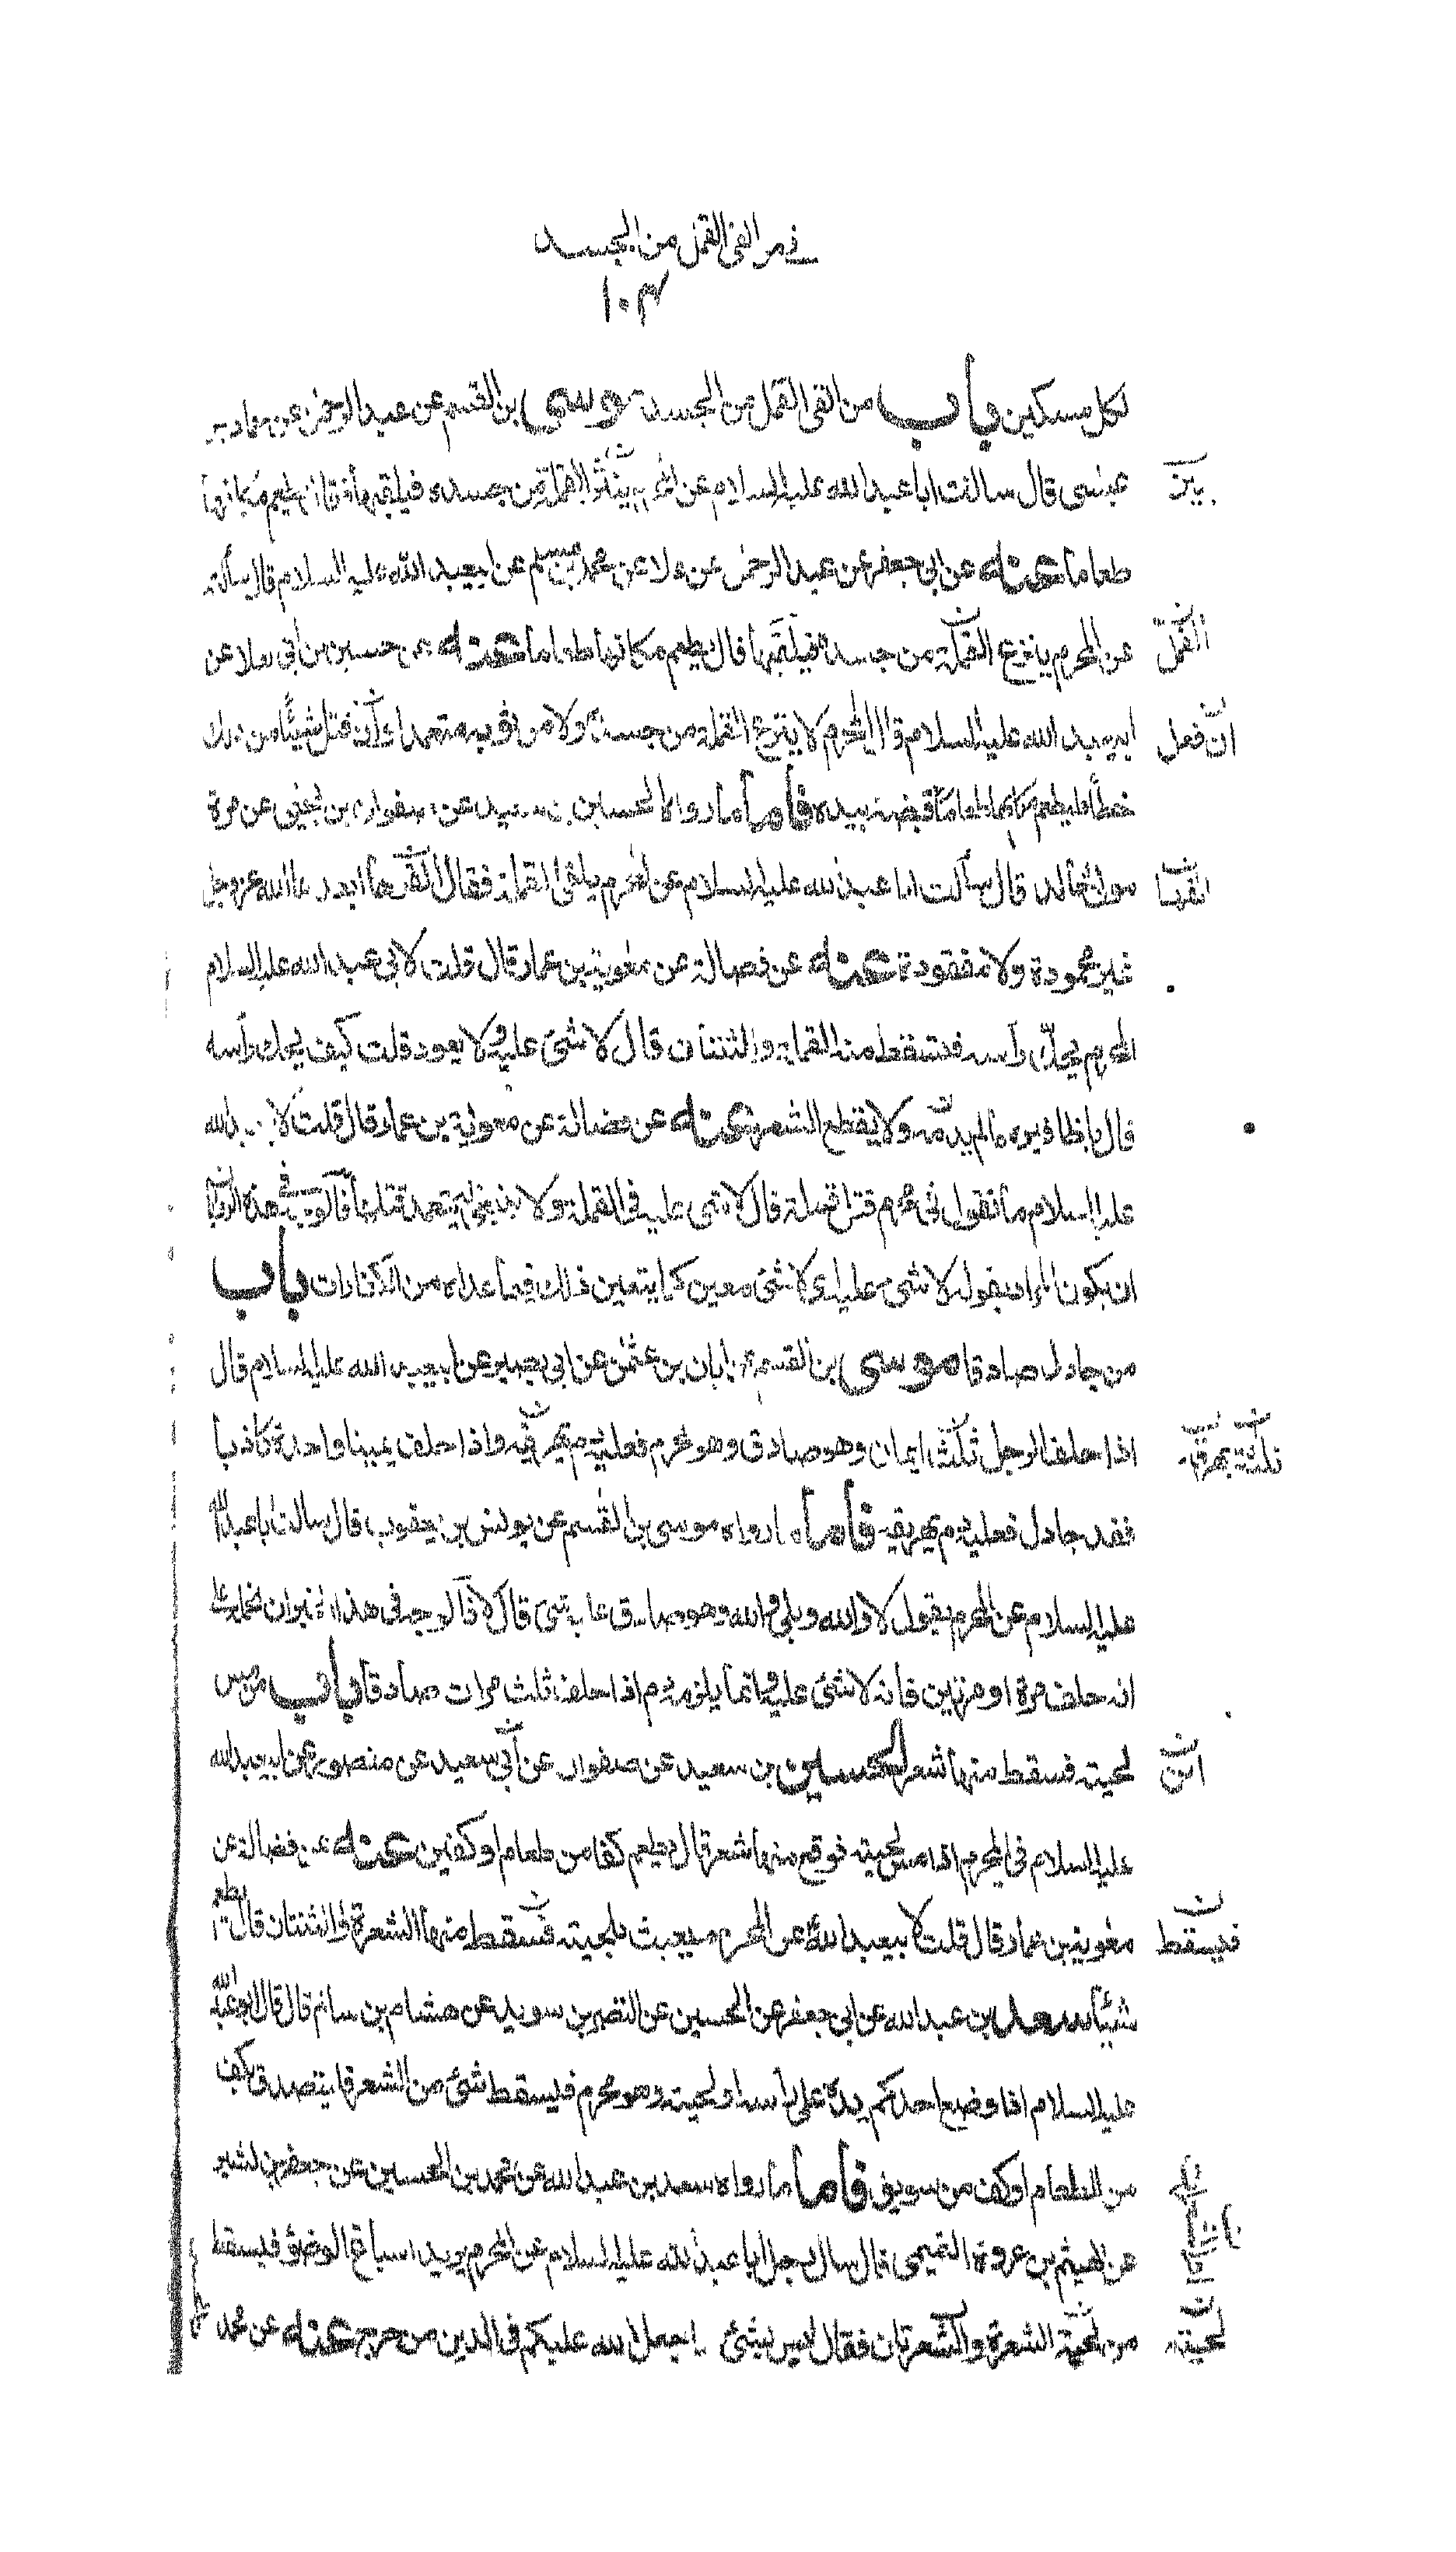 في من القى القمل من الجسد
١٠٣
لكل مسكين باب من القى القمل من الجسد موسى بن القسم عن عبد الرحمن عن حماد بن
عيسى قال سالت ابا عبد الله عليه السلام عن المحرم يبين القملة من جسده فيلقيها فقال يطعم مكانها
يبين
طعاما عنه عن ابي جعفر عن عبد الرحمن عن علا عن محمد بن مسلم عن ابيعبد الله عليه السلام قال سألته
عن المحرم ينزع القملة من جسده فيلقيها قال يطعم مكانها طعاما عنه عن حسين بن ابي العلا عن
القمل
ابيعبد الله عليه السلام قال المحرم لا ينزع القملة من جسده ولا من ثوبه متعمدا وان قتل شيئا من ذلك
ان فعل
خطأ فليطعم مكانها طعاما قبضة بيده فأما ما رواه الحسين بن سعيد عن صفوان بن يحيى عن مرة
مولى خالد قال سألت ابا عبد الله عليه السلام عن المحرم يلقى القملة فقال القها ابعدها الله عز وجل
القوها
غير محمودة ولا مفقودة عنه عن فضالة عن معوية بن عمار قال قلت لابي عبد الله عليه السلام
المحرم يحك راسه فتسقط منه القملة والثنتان قال لا شئ عليه ولا يعود قلت كيف يحك رأسه
قال باظافيره ما لم يدمه ولا يقطع الشعر عنه عن فضالة عن معوية بن عمار قال قلت لابيعبد الله
عليه السلام ما تقول في محرم قتل قملة قال لا شئ عليه في القملة ولا ينبغي ان يتعمد قتلها فالوجه في هذه الروايات
ان يكون المراد بقوله لا شئ عليه اي لا شئ معين كما يتعين ذلك فيما عداه من الكفارات باب
من جادل صادقا موسى بن القسم عن ابان بن عثمن عن ابي بصير عن ابيعبد الله عليه السلام قال
اذا حلف الرجل ثلث ايمان وهو صادق وهو محرم فعليه دم يهريقه واذا حلف يمينا واحدة كاذبا
ثلثة يهرق
فقد جادل فعليه دم يهريقه فأما ما رواه موسى بن القسم عن يونس بن يعقوب قال سالت ابا عبد الله
عليه السلام عن المحرم يقول لا والله وبلى والله وهو صادق عليه شئ قال لا فالوجه في هذا الخبر ان نحمله على
انه حلف مرة او مرتين فانه لا شئ عليه وانما يلزمه دم اذا حلف ثلث مرات صادقا باب من مس
لحيته فسقط منها شعر الحسين بن سعيد عن صفوان عن ابي سعيد عن منصور عن ابيعبد الله
ابن
عليه السلام في المحرم اذا مس لحيته فوقع منها شعر قال يطعم كفا من طعام او كفين عنه عن فضالة عن
معوية بن عمار قال قلت لابيعبد الله عن المحرم يعبث بلحيته فسقط منها الشعرة والثنتان قال يطعم
فيسقط
شيئا سعد بن عبد الله عن ابي جعفر عن الحسين عن النضر بن سويد عن هشام بن سالم قال قال ابو عبد الله
عليه السلام اذا وضع احدكم يده على راسه او لحيته وهو محرم فيسقط شئ من الشعر فليتصدق بكف
من الطعام او كف من سويق فأما ما رواه سعد بن عبد الله عن محمد بن الحسين عن جعفر بن بشير
عن الهيثم بن عروة التميمي قال سال رجل ابا عبد الله عليه السلام عن المحرم يريد اسباغ الوضوء فيسقط
من لحيته الشعرة والشعرتان فقال ليس بشئ ما جعل الله عليكم في الدين من حرج عنه عن محمد
لحيته